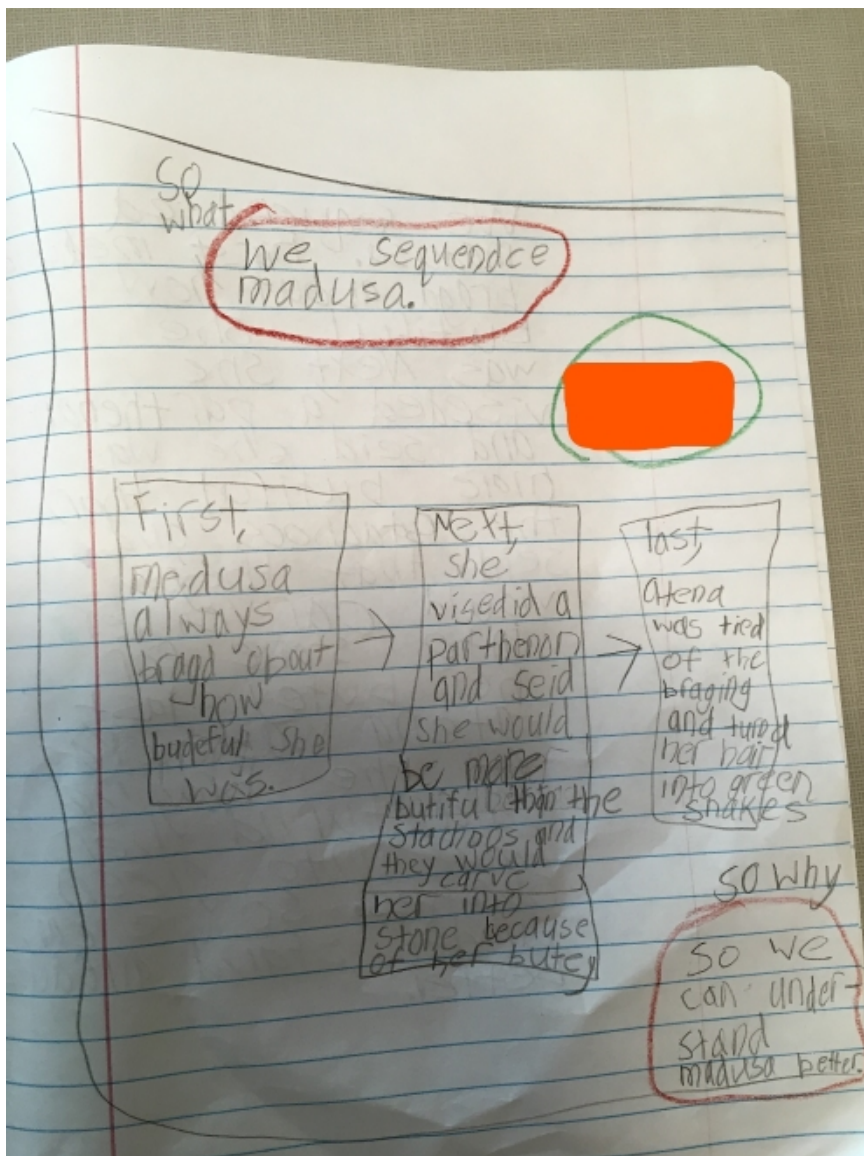 So
what
we sequendce
madusa.
First,
medusa
always
bragd about
how
budeful she
was.
Next,
she
visedid a
parthenon
and seid
she would
be more
butiful than the
stachoos and
they would
carve
her into
stone because
of her butey
last,
atena
was tied
of the
braging
and turnd
her hair
into green
snakes
so why
so we
can under-
stand
madusa better.